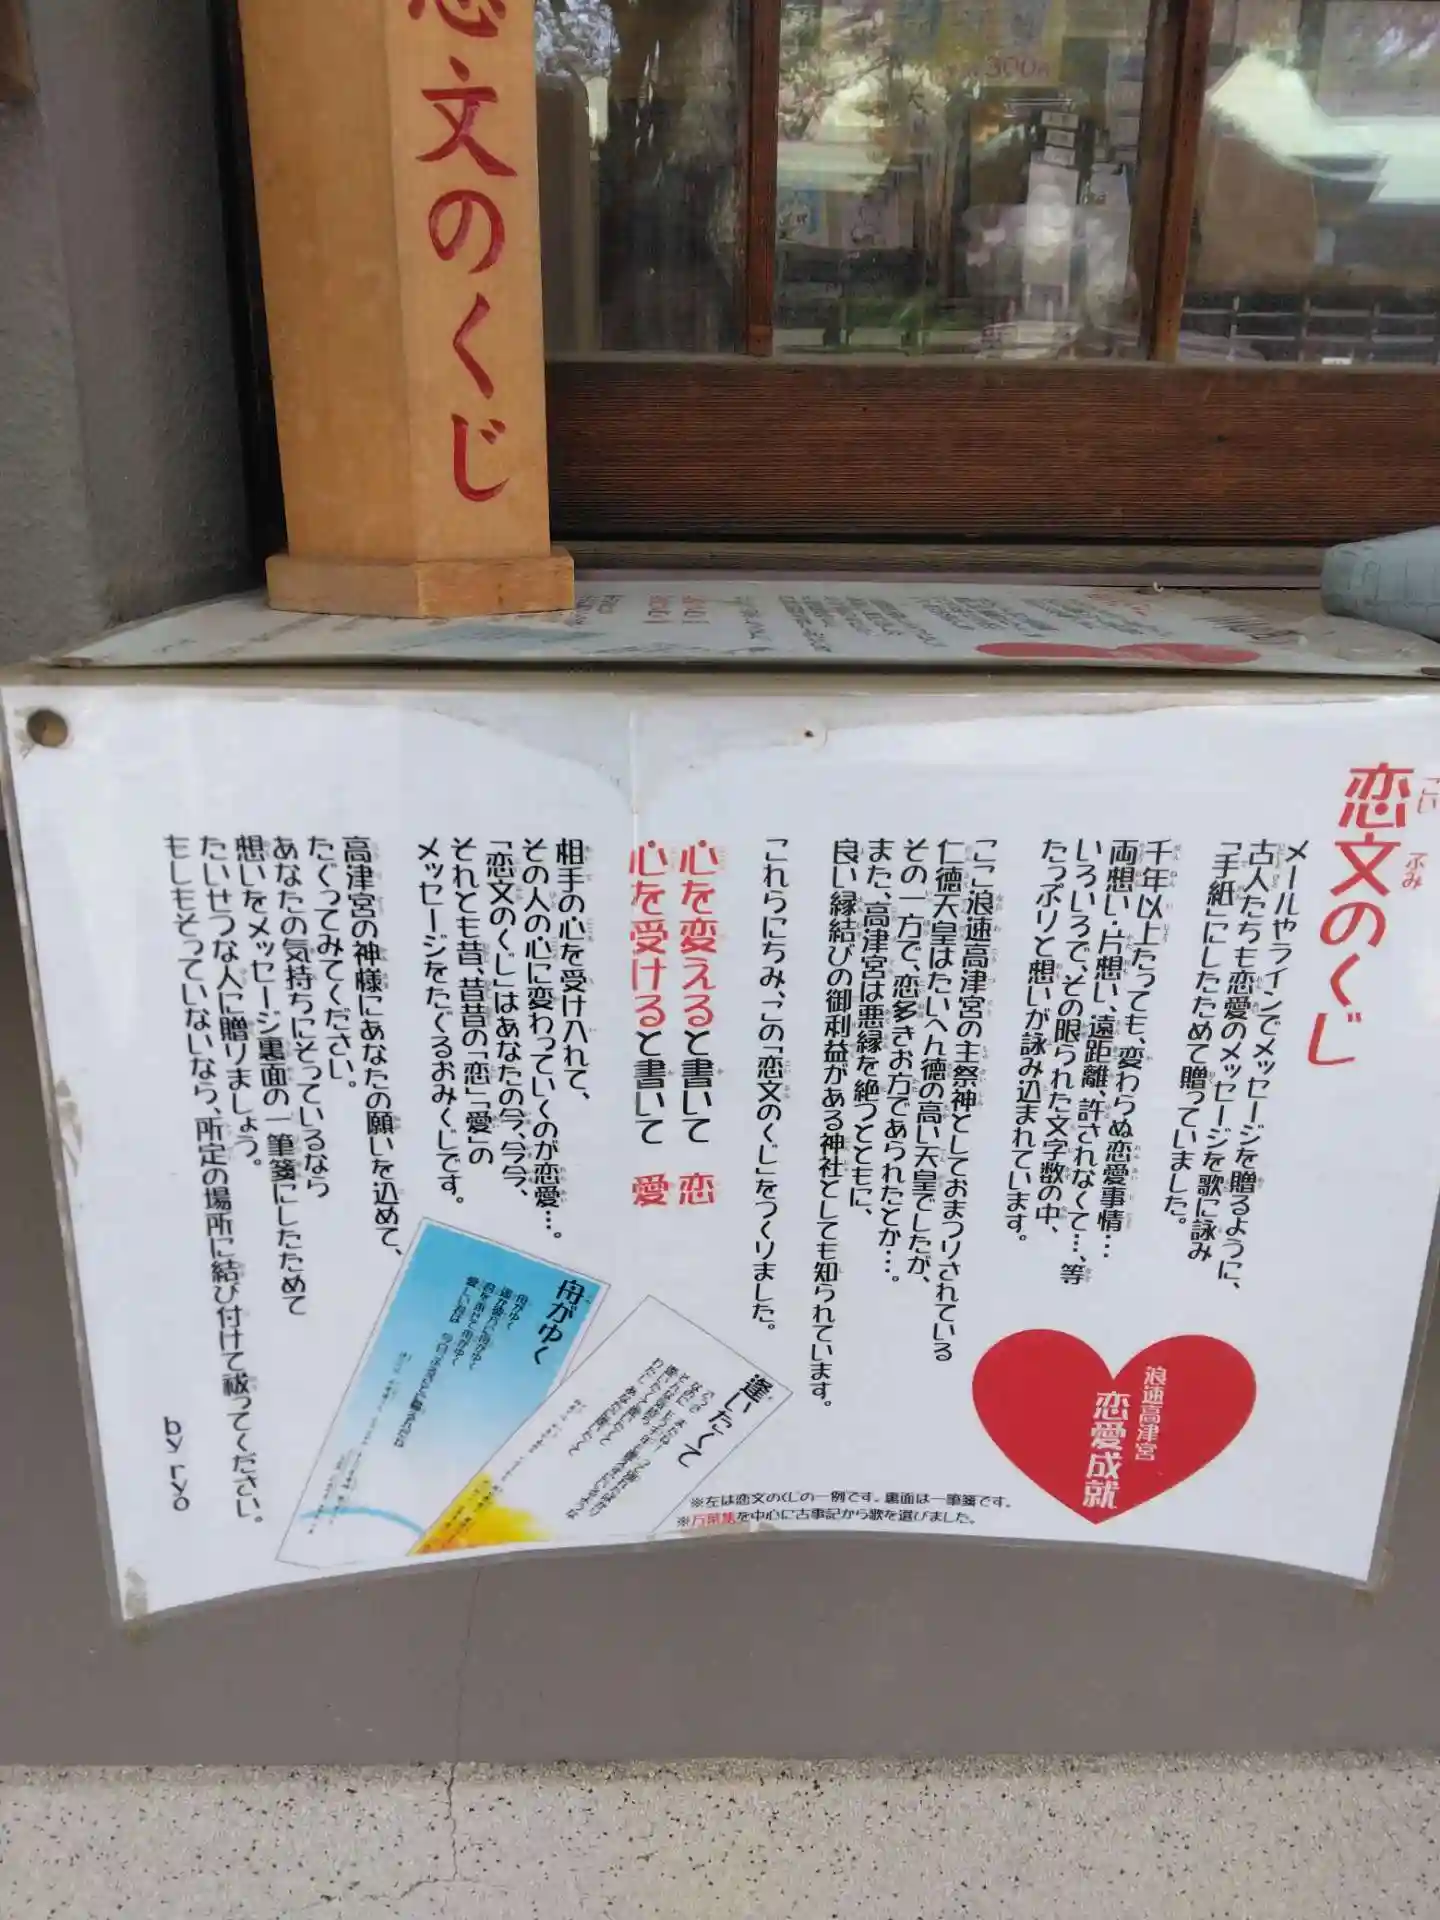 恋文のくじ
300円
恋文のくじ
メールやラインでメッセージを贈るように、
古人たちも恋愛のメッセージを歌に詠み
「手紙」にしたためて贈っていました。
千年以上たっても、変わらぬ恋愛事情…
両想い・片想い、遠距離、許されなくて…、等
いろいろで、その限られた文字数の中、
たっぷりと想いが詠み込まれています。
ここ浪速高津宮の主祭神としておまつりされている
仁徳天皇はたいへん徳の高い天皇でしたが、
その一方で、恋多きお方であられたとか…。
また、高津宮は悪縁を絶つとともに、
良い縁結びの御利益がある神社としても知られています。
これらにちみ、この「恋文のくじ」をつくりました。
心を変えると書いて 恋
心を受けると書いて 愛
相手の心を受け入れて、
その人の心に変わっていくのが恋愛…。
「恋文のくじ」はあなたの今、今今、
それとも昔、昔昔の「恋」「愛」の
メッセージをたぐるおみくじです。
高津宮の神様にあなたの願いを込めて、
たぐってみてください。
あなたの気持ちにそっているなら
想いをメッセージ裏面の一筆箋にしたためて
たいせつな人に贈りましょう。
もしもそっていないなら、所定の場所に結び付けて祓ってください。
by ryo
浪速高津宮
恋愛成就
逢いたくて
舟がゆく
舟がゆく
※左は恋文のくじの一例です。裏面は一筆箋です。
※万葉集を中心に古事記から歌を選びました。